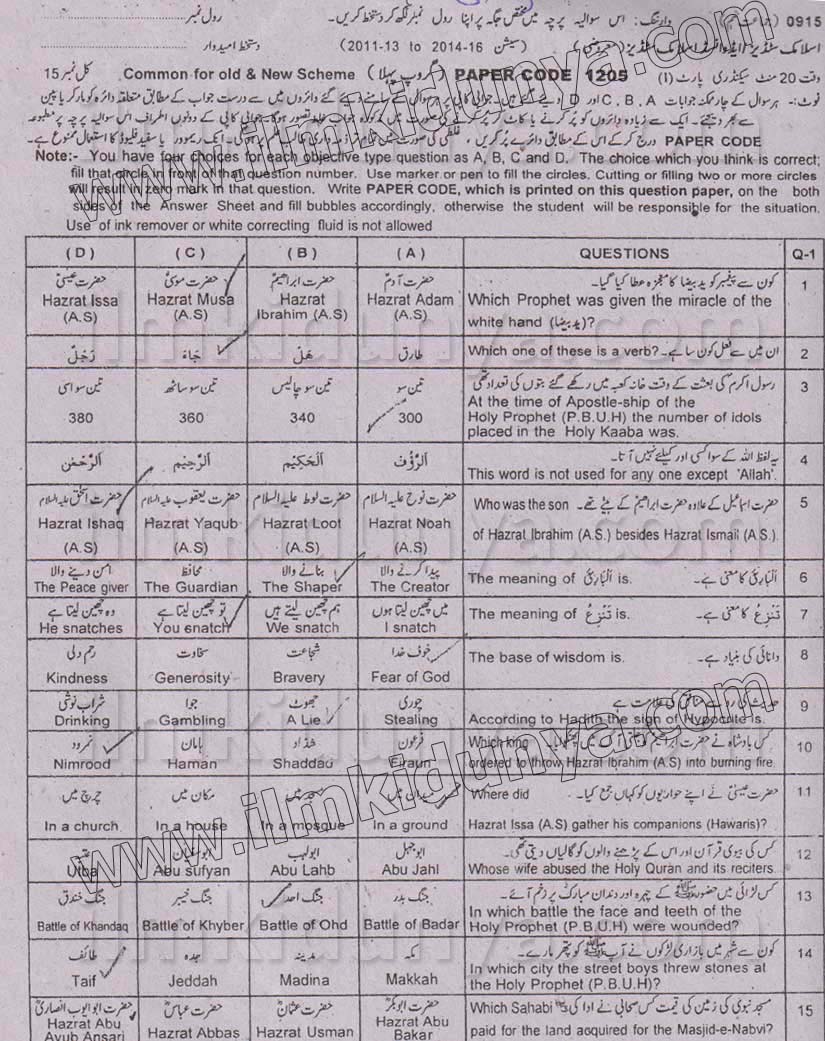 0915 وارننگ: اس سوالیہ پرچہ میں مختص جگہ پر اپنا رول نمبر لکھ کر دستخط کریں۔ رول نمبر
(سیشن 2011-13 to 2014-16) دستخط امیدوار
وقت 20 منٹ سیکنڈری پارٹ (I) PAPER CODE 1205 (گروپ پہلا) Common for old & New Scheme کل نمبر 15
PAPER CODE درج کر کے اس کے مطابق دائرے پُر کریں،
Note:- You have four choices for each objective type question as A, B, C and D. The choice which you think is correct;
fill that circle in front of that question number. Use marker or pen to fill the circles. Cutting or filling two or more circles
will result in zero mark in that question. Write PAPER CODE, which is printed on this question paper, on the both
sides of the Answer Sheet and fill bubbles accordingly, otherwise the student will be responsible for the situation.
Use of ink remover or white correcting fluid is not allowed
(D) (C) (B) (A) QUESTIONS Q-1
حضرت عیسیٰؑ حضرت موسیٰؑ حضرت ابراہیمؑ حضرت آدمؑ کون سے پیغمبر کو یدبیضا کا معجزہ عطا کیا گیا۔ 1
Hazrat Issa (A.S) Hazrat Musa (A.S) Hazrat Ibrahim (A.S) Hazrat Adam (A.S) Which Prophet was given the miracle of the
white hand (یدبیضا)?
رَجُلٌ جَاءَ هَلْ طارق Which one of these is a verb? ان میں سے فعل کون سا ہے۔ 2
تین سو اسی تین سو ساٹھ تین سو چالیس تین سو رسول اکرمؐ کی بعثت کے وقت خانہ کعبہ میں رکھے گئے بتوں کی تعداد تھی 3
380 360 340 300 At the time of Apostle-ship of the
Holy Prophet (P.B.U.H) the number of idols
placed in the Holy Kaaba was.
اَلرَّحْمٰنُ اَلرَّحِيْمُ اَلْحَكِيْمُ اَلرَّؤُفُ یہ لفظ اللہ کے سوا کسی اور کیلئے نہیں آتا۔ 4
This word is not used for any one except 'Allah'.
حضرت اسحٰق علیہ السلام حضرت یعقوب علیہ السلام حضرت لوط علیہ السلام حضرت نوح علیہ السلام Who was the son حضرت اسماعیلؑ کے علاوہ حضرت ابراہیمؑ کے بیٹے تھے۔ 5
Hazrat Ishaq (A.S) Hazrat Yaqub (A.S) Hazrat Loot (A.S) Hazrat Noah (A.S) of Hazrat Ibrahim (A.S.) besides Hazrat Ismail (A.S.)
امن دینے والا محافظ بنانے والا پیدا کرنے والا The meaning of اَلْبَارِئُ is. اَلْبَارِئُ کا معنی ہے۔ 6
The Peace giver The Guardian The Shaper The Creator
وہ چھین لیتا ہے تو چھین لیتا ہے ہم چھین لیتے ہیں میں چھین لیتا ہوں The meaning of تَنْزِعُ is. تَنْزِعُ کا معنی ہے۔ 7
He snatches You snatch We snatch I snatch
رحم دلی سخاوت شجاعت خوف خدا The base of wisdom is. دانائی کی بنیاد ہے۔ 8
Kindness Generosity Bravery Fear of God
شراب نوشی جوا جھوٹ چوری حدیث کی رو سے منافق کی علامت ہے 9
Drinking Gambling A Lie Stealing According to Hadith the sign of Hypocrite is.
نمرود ہامان شداد فرعون Which king کس بادشاہ نے حضرت ابراہیمؑ کو 10
Nimrood Haman Shaddad Firaun ordered to throw Hazrat Ibrahim (A.S) into burning fire.
چرچ میں مکان میں مسجد میں میدان میں Where did حضرت عیسیٰؑ نے اپنے حواریوں کو کہاں جمع کیا۔ 11
In a church In a house In a mosque In a ground Hazrat Issa (A.S) gather his companions (Hawaris)?
عتبہ ابوسفیان ابولہب ابوجہل کس کی بیوی قرآن اور اس کے پڑھنے والوں کو گالیاں دیتی تھی۔ 12
Utba Abu sufyan Abu Lahb Abu Jahl Whose wife abused the Holy Quran and its reciters.
جنگ خندق جنگ خیبر جنگ احد جنگ بدر کس لڑائی میں حضورﷺ کے چہرہ اور دندان مبارک پر زخم آئے۔ 13
Battle of Khandaq Battle of Khyber Battle of Ohd Battle of Badar In which battle the face and teeth of the
Holy Prophet (P.B.U.H) were wounded?
طائف جدہ مدینہ مکہ کون سے شہر میں بازاری لڑکوں نے آپﷺ کو پتھر مارے۔ 14
Taif Jeddah Madina Makkah In which city the street boys threw stones at
the Holy Prophet (P.B.U.H)?
حضرت ابو ایوب انصاریؓ حضرت عباسؓ حضرت عثمانؓ حضرت ابوبکرؓ Which Sahabi مسجد نبوی کی زمین کی قیمت کس صحابی نے ادا کی 15
Hazrat Abu Ayub Ansari Hazrat Abbas Hazrat Usman Hazrat Abu Bakar paid for the land acquired for the Masjid-e-Nabvi?
www.ilmkidunya.com
www.ilmkidunya.com
ilmkidunya.com
ilmkidunya.com